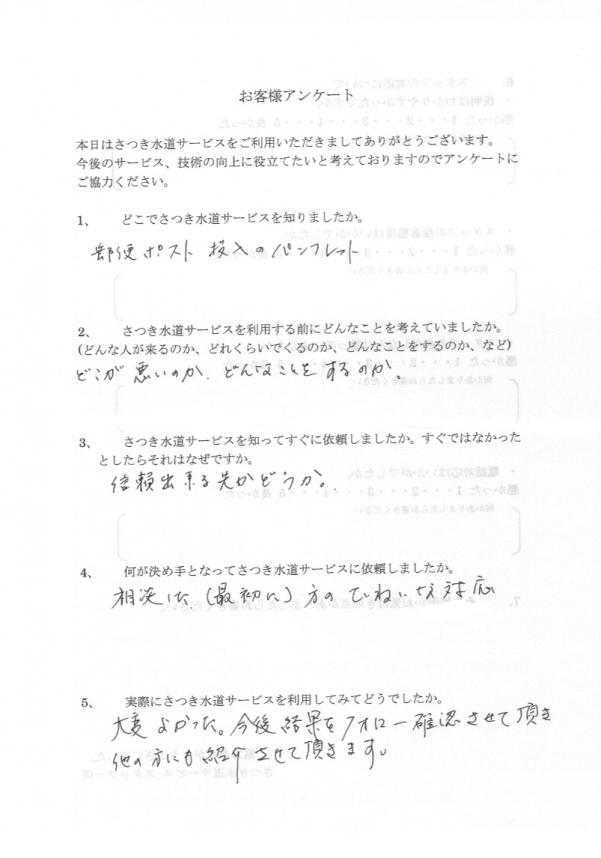 お客様アンケート
本日はさつき水道サービスをご利用いただきましてありがとうございます。
今後のサービス、技術の向上に役立てたいと考えておりますのでアンケートに
ご協力ください。
1、 どこでさつき水道サービスを知りましたか。
郵便ポスト 投入のパンフレット
2、 さつき水道サービスを利用する前にどんなことを考えていましたか。
(どんな人が来るのか、どれくらいでくるのか、どんなことをするのか、など)
どこが悪いのか、どんなことをするのか。
3、 さつき水道サービスを知ってすぐに依頼しましたか。すぐではなかった
としたらそれはなぜですか。
信頼出来る先かどうか。
4、 何が決め手となってさつき水道サービスに依頼しましたか。
相談した (最初に) 方のていねいな対応
5、 実際にさつき水道サービスを利用してみてどうでしたか。
大変よかった。今後結果をフォロー確認させて頂き
他の方にも紹介させて頂きます。